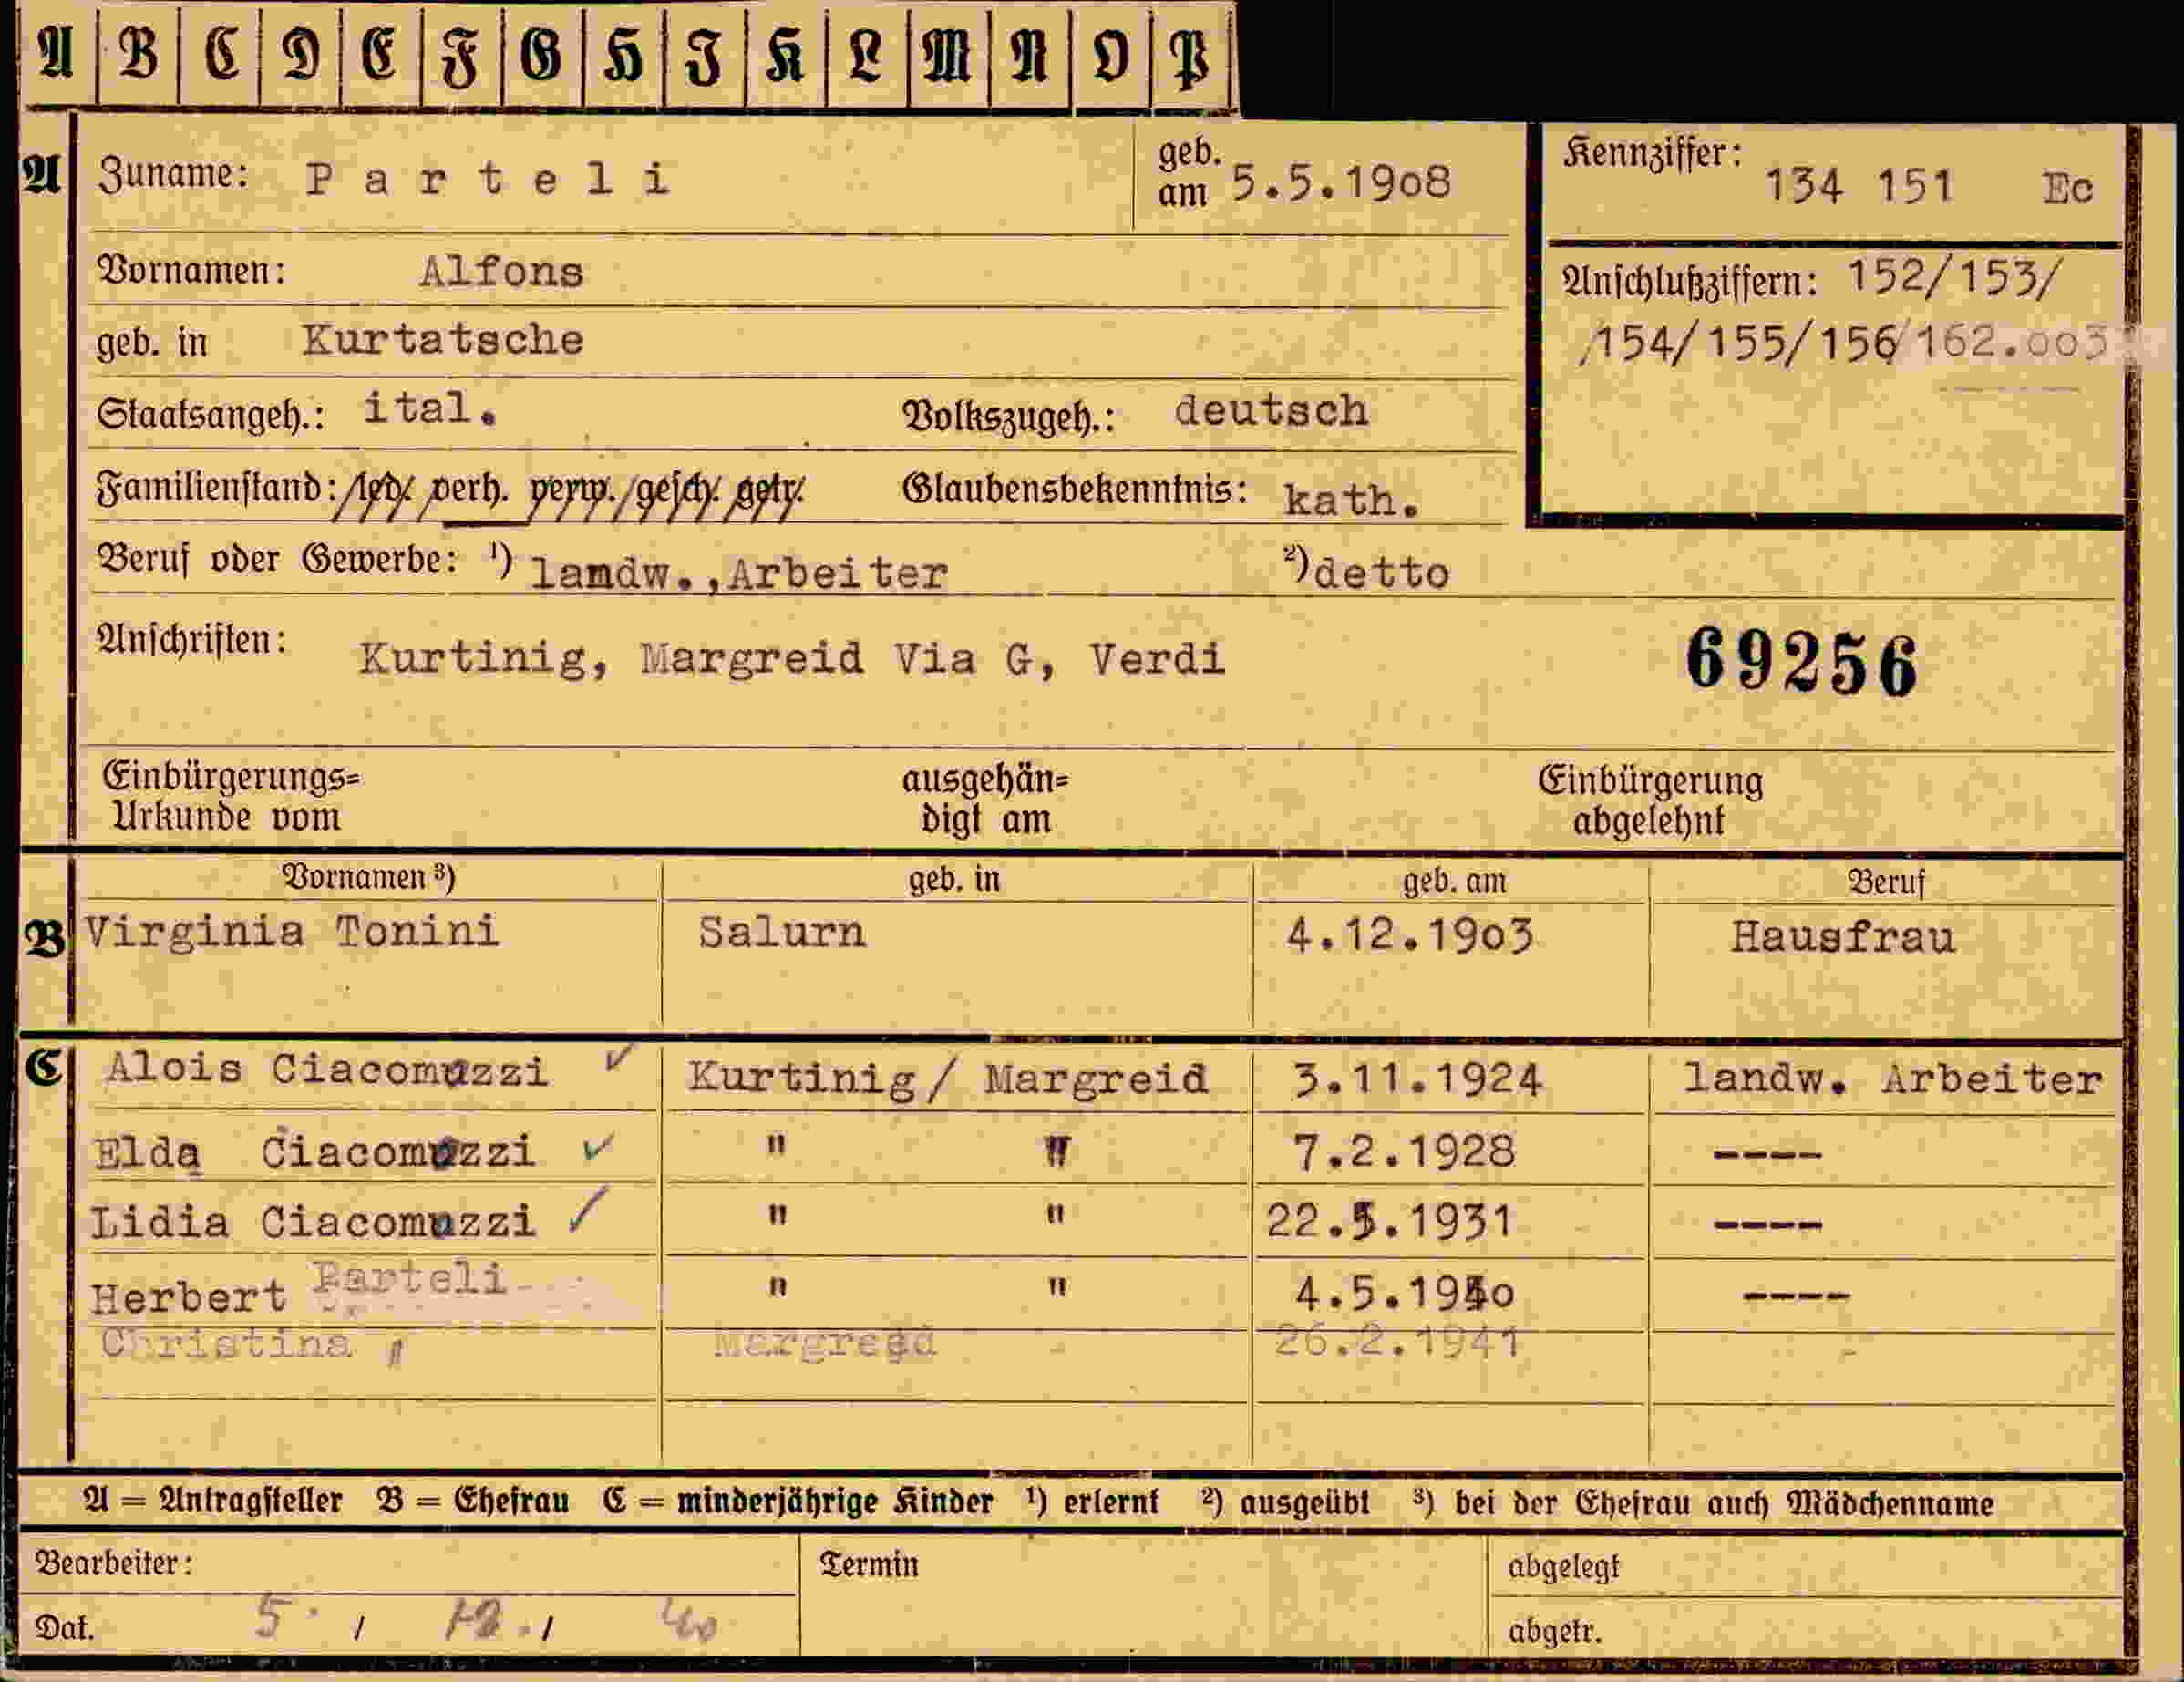 A B C D E F G H J K L M N O P
A Zuname: Parteli geb. am 5.5.1908 Kennziffer: 134 151 Ec
Vornamen: Alfons
Anschlußziffern: 152/153/
/154/155/156/162.003
geb. in Kurtatsche
Staatsangeh.: ital. Volkszugeh.: deutsch
Familienstand: led. verh. verw. gesch. getr. Glaubensbekenntnis: kath.
Beruf oder Gewerbe: ¹) landw.,Arbeiter ²) detto
Anschriften: Kurtinig, Margreid Via G, Verdi 69256
Einbürgerungs= ausgehän= Einbürgerung
Urkunde vom digt am abgelehnt
Vornamen ³) geb. in geb. am Beruf
B Virginia Tonini Salurn 4.12.1903 Hausfrau
C Alois Ciacomuzzi ✓ Kurtinig/ Margreid 3.11.1924 landw. Arbeiter
Elda Ciacomuzzi ✓ " " 7.2.1928 ----
Lidia Ciacomuzzi ✓ " " 22.5.1931 ----
Herbert Parteli " " 4.5.1940 ----
Christina " Margreid 26.2.1941 -
A = Antragsteller B = Ehefrau C = minderjährige Kinder ¹) erlernt ²) ausgeübt ³) bei der Ehefrau auch Mädchenname
Bearbeiter: Termin abgelegt
Dat. 5. / 12. / 40 abgetr.